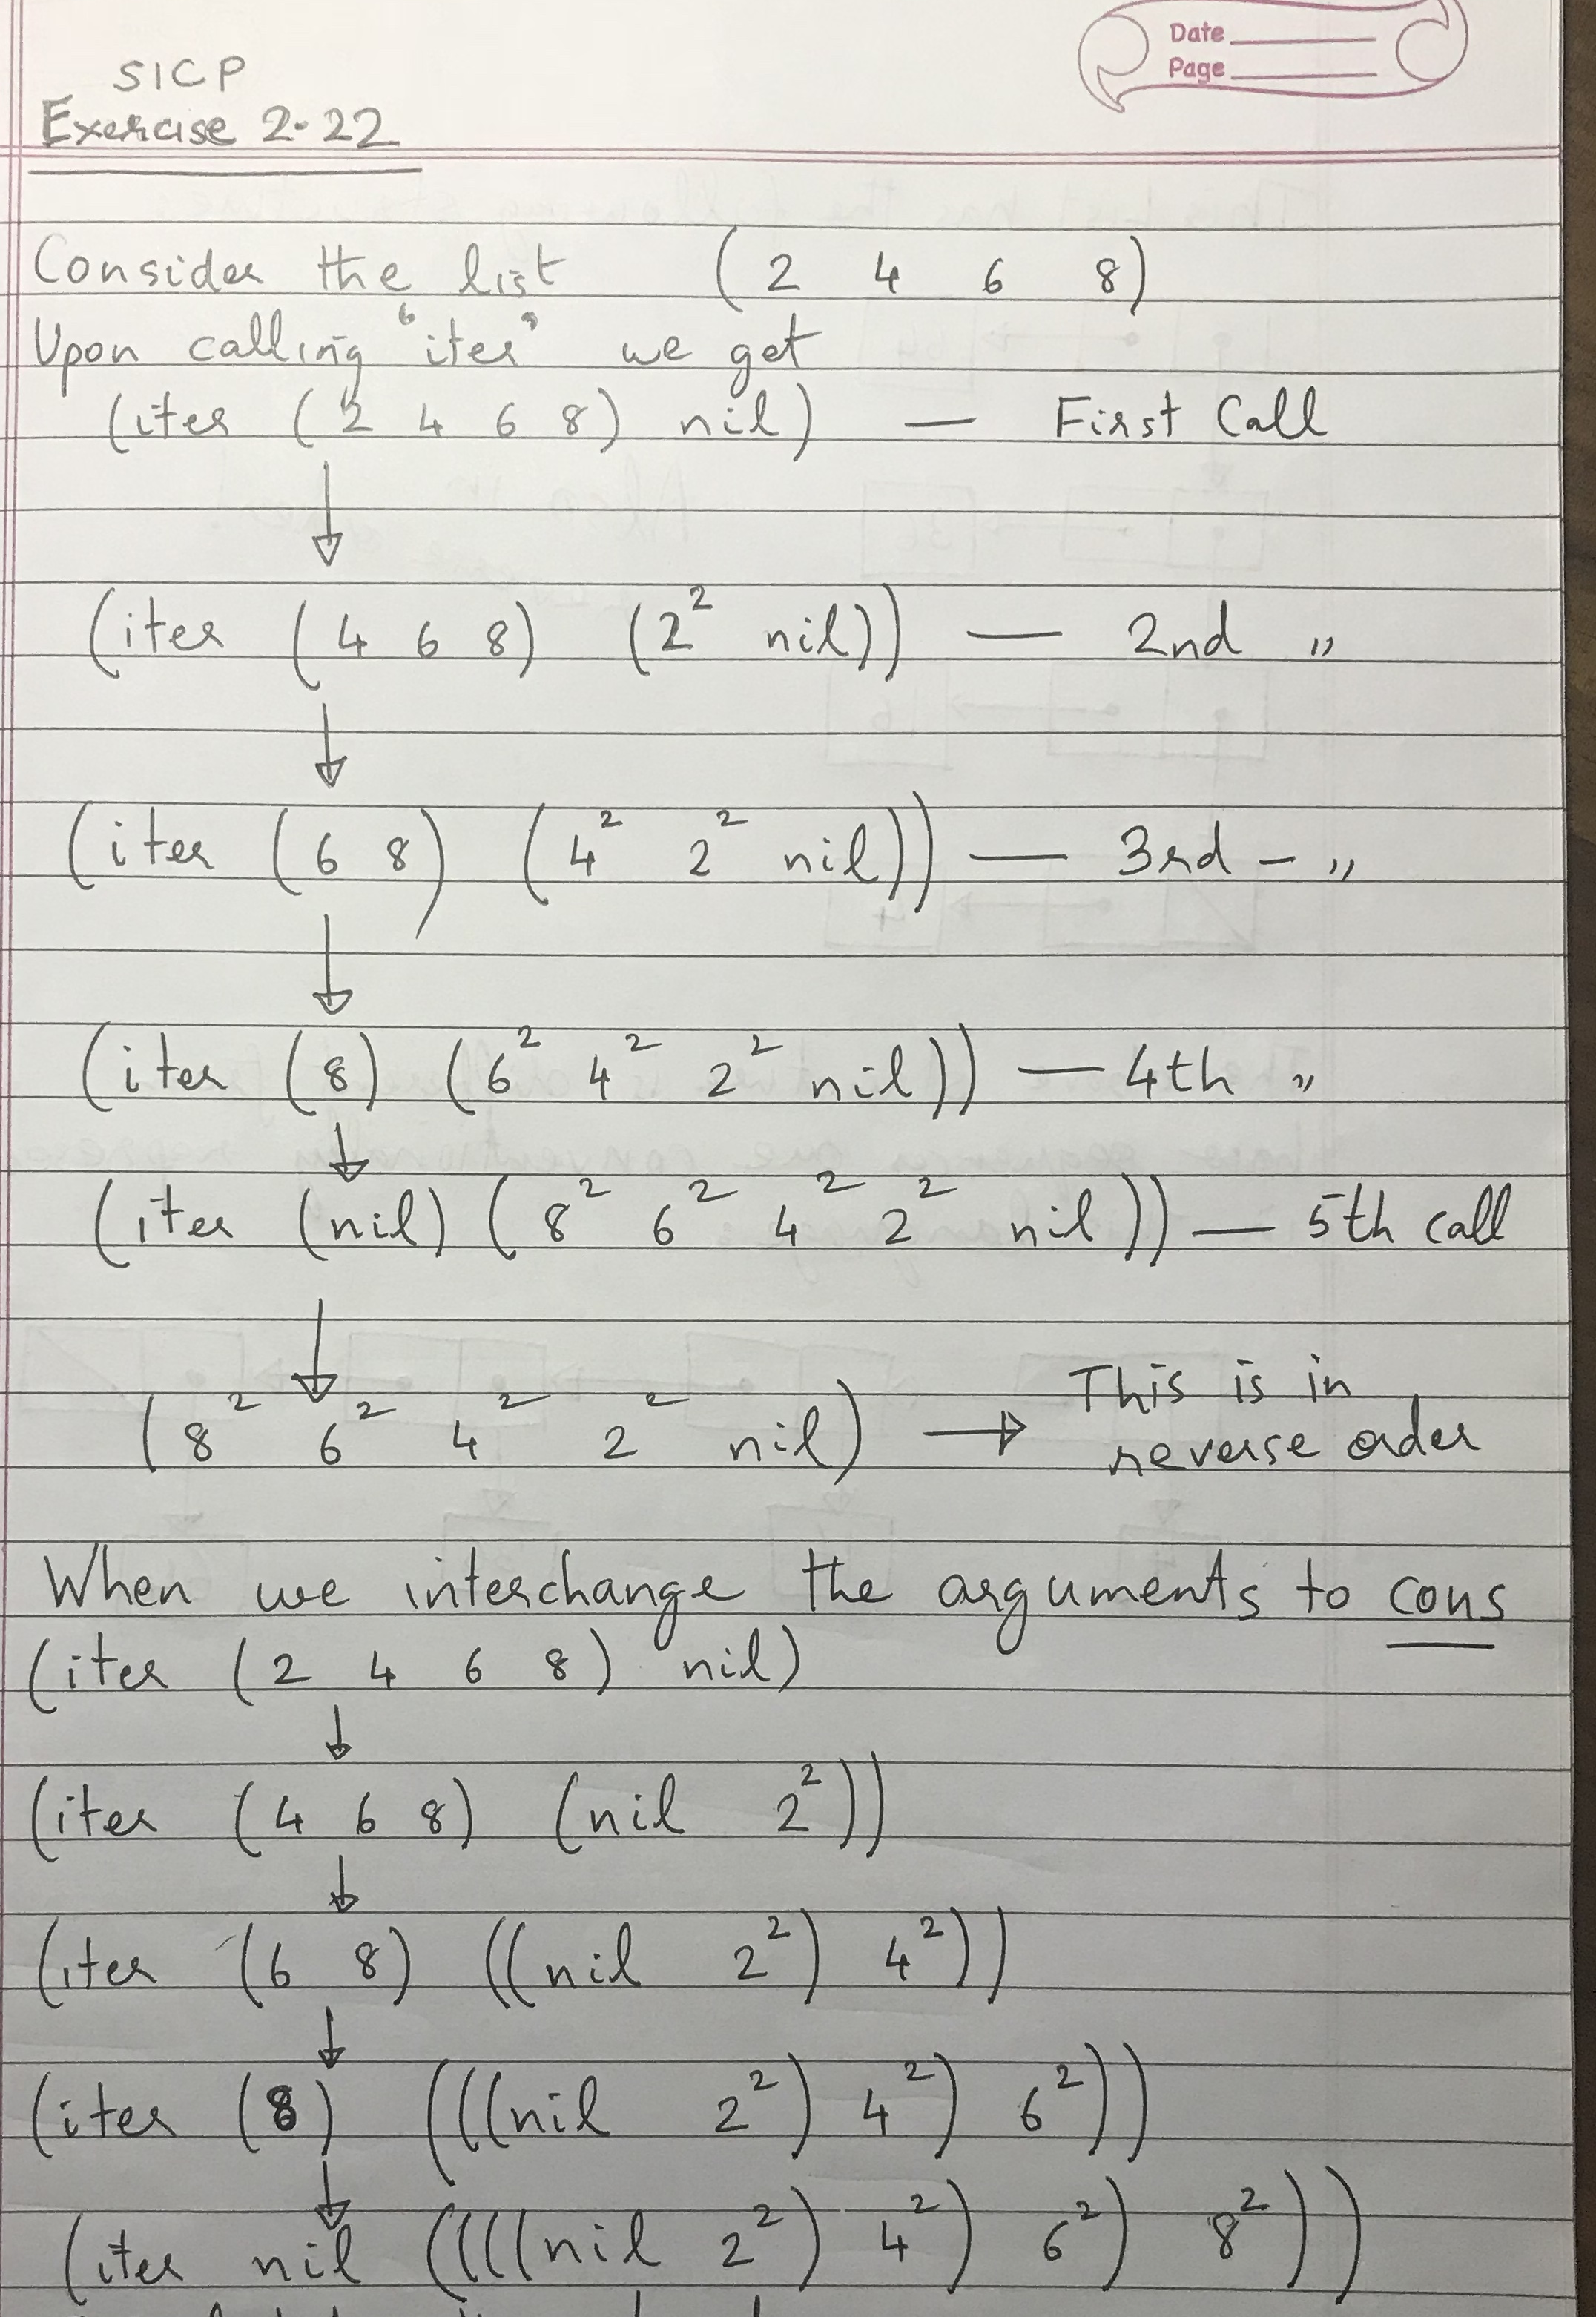 Date
Page
SICP
Exercise 2.22
Consider the list (2 4 6 8)
Upon calling "iter" we get
(iter (2 4 6 8) nil) — First Call
↓
(iter (4 6 8) (2² nil)) — 2nd "
↓
(iter (6 8) (4² 2² nil)) — 3rd - "
↓
(iter (8) (6² 4² 2² nil)) — 4th "
↓
(iter (nil) (8² 6² 4² 2² nil)) — 5th call
↓
(8² 6² 4² 2² nil) → This is in
reverse order
When we interchange the arguments to cons
(iter (2 4 6 8) nil)
↓
(iter (4 6 8) (nil 2²))
↓
(iter (6 8) ((nil 2²) 4²))
↓
(iter (8) (((nil 2²) 4²) 6²))
↓
(iter nil ((((nil 2²) 4²) 6²) 8²))